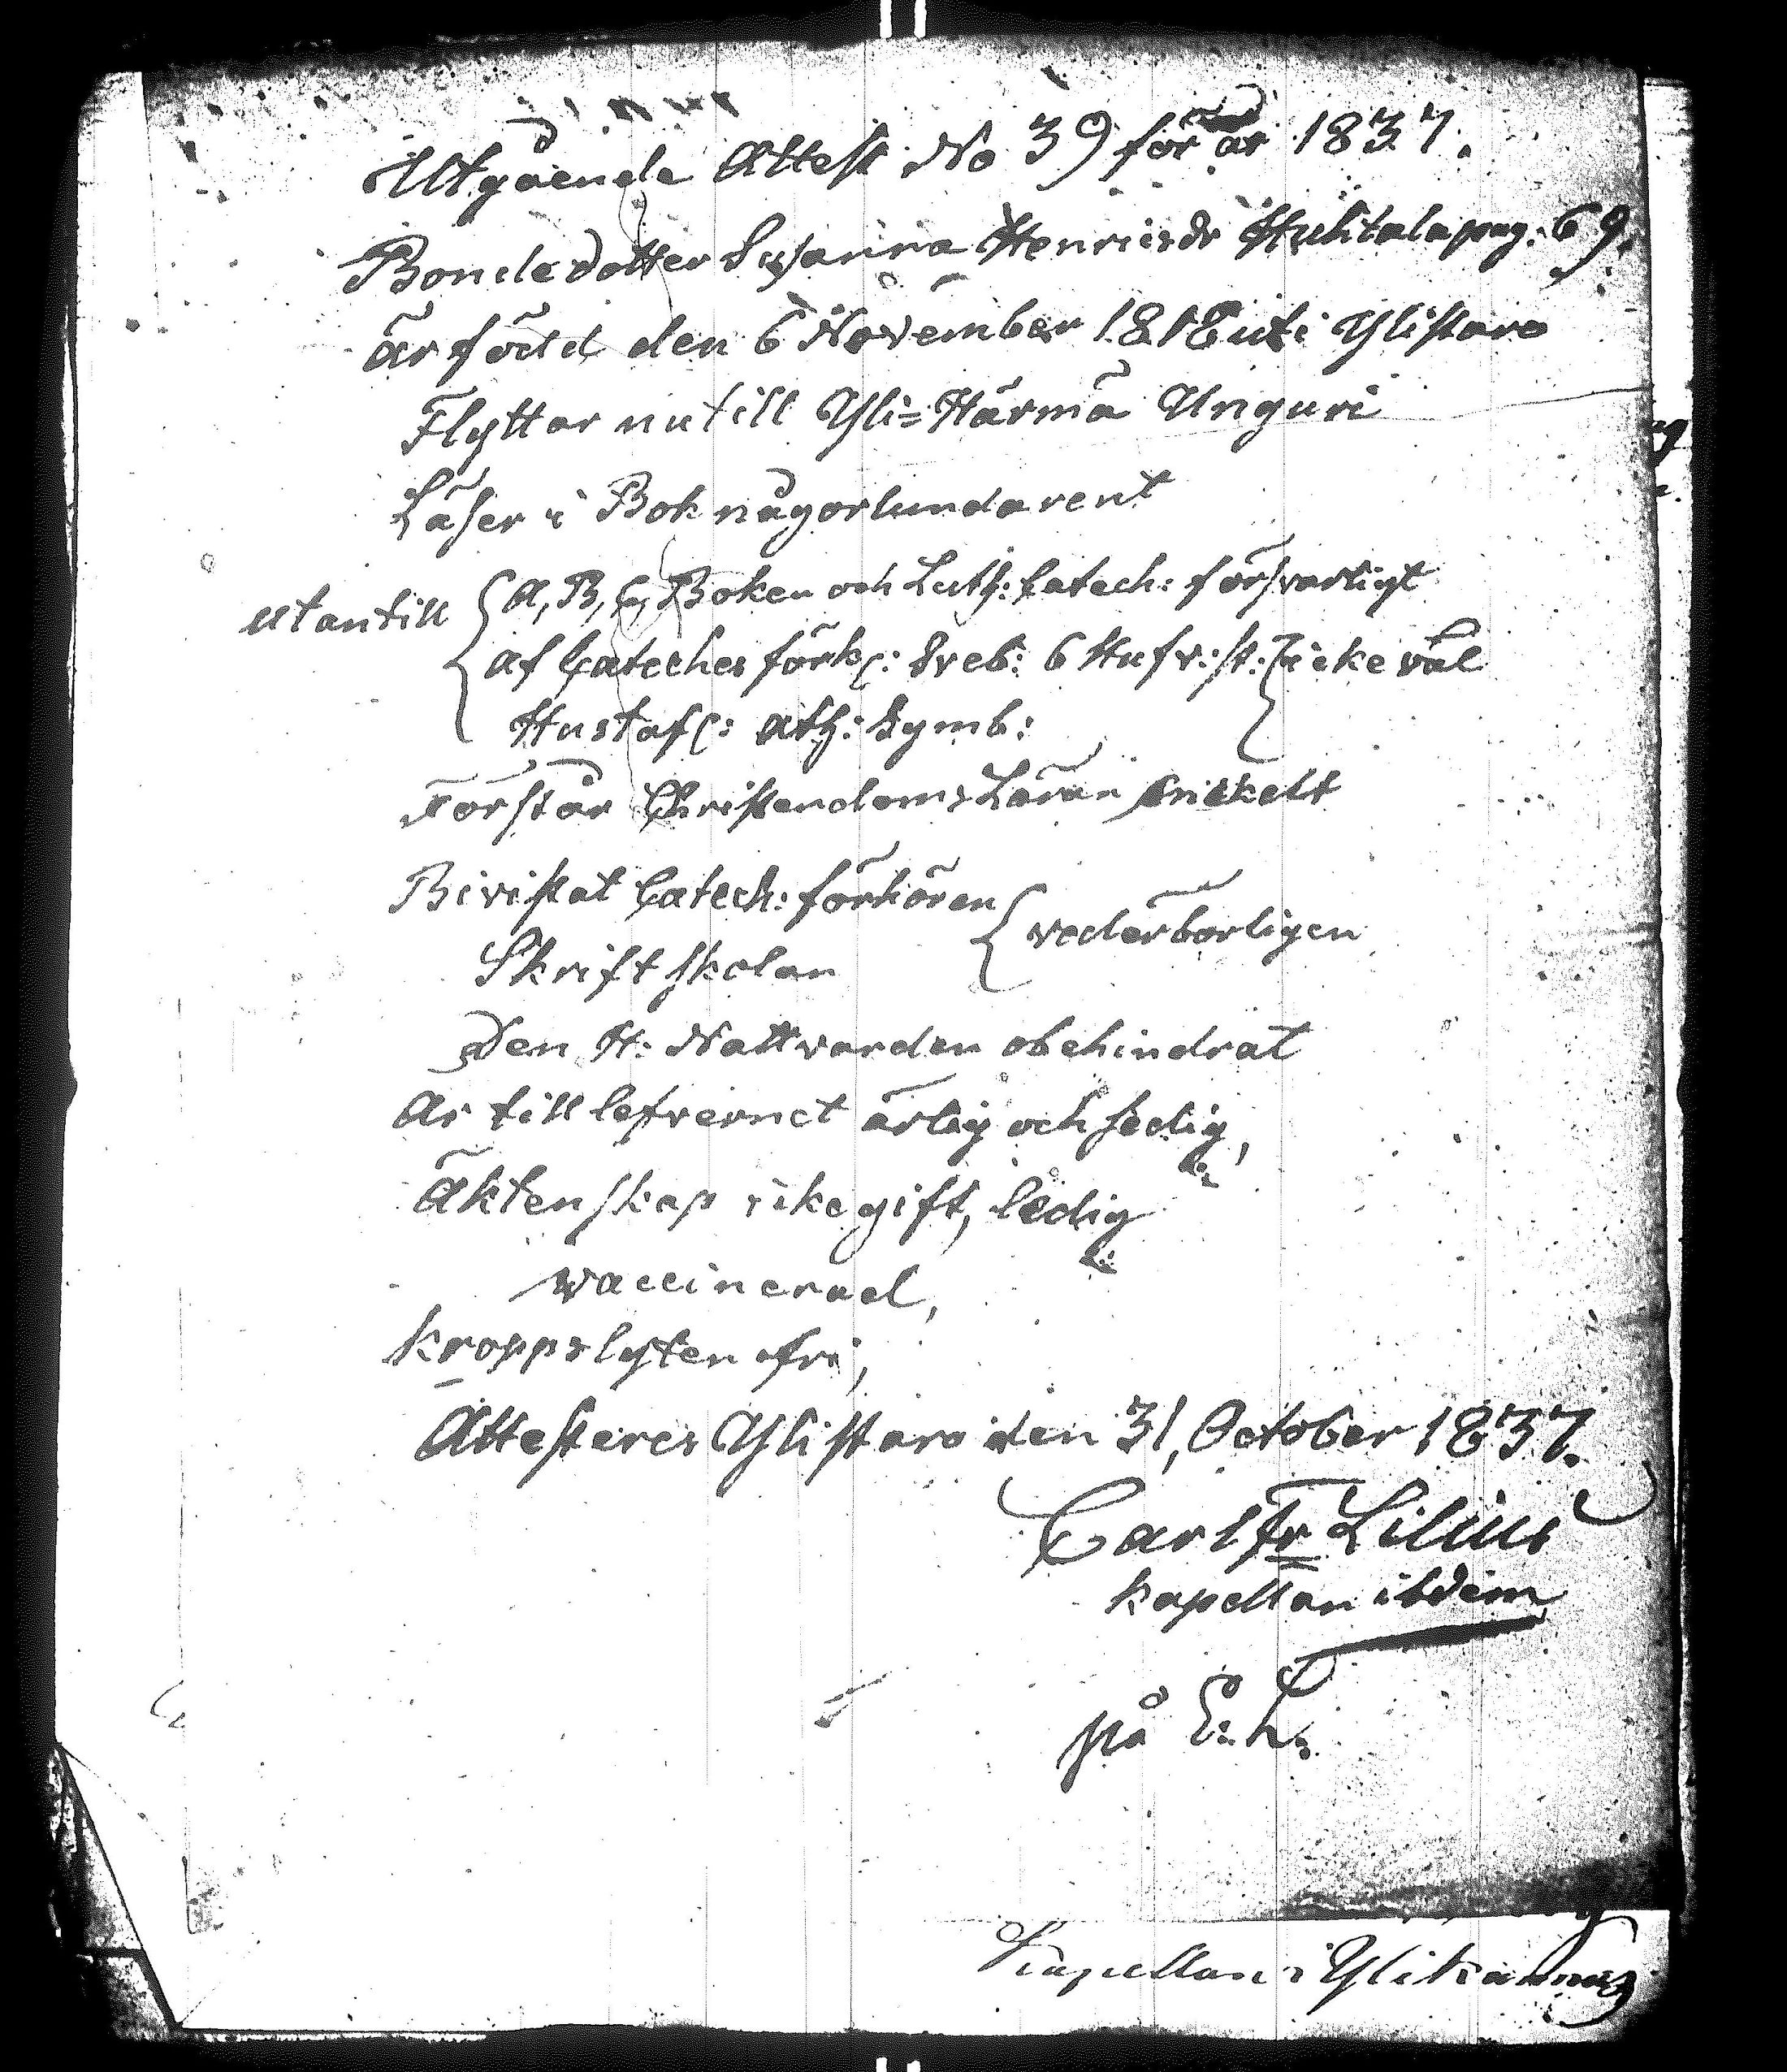 Utgående Attest No 39 för år 1837.
Bondedotter Susanna Henricsdr Huhtala pag. 69.
är född den 6 November 1818 uti Ylistaro
Flyttar nu till Yli=Härmä Unguri
Läser i Bok någorlunda rent
utantill { A, B, C, Boken och Luth: Catech: försvarligt
af Cateches förk: Sveb: 6 Hufv: st: } icke väl
Hustafl: ath: Symb:
Förstår Christendoms Läran enskelt
Bivistat Catech: förhören { vederbörligen
Skriftskolan
Den H: Nattvarden obehindrat
Är till lefvernet ärlig och sedig,
Äktenskap icke gift, ledig
vaccinerad,
kroppslyten fri,
Attesteres Ylistaro den 31, October 1837.
Carl Fr Lilius
kapellan ibdem
på E. L.
Kapellan i Ylihärmä